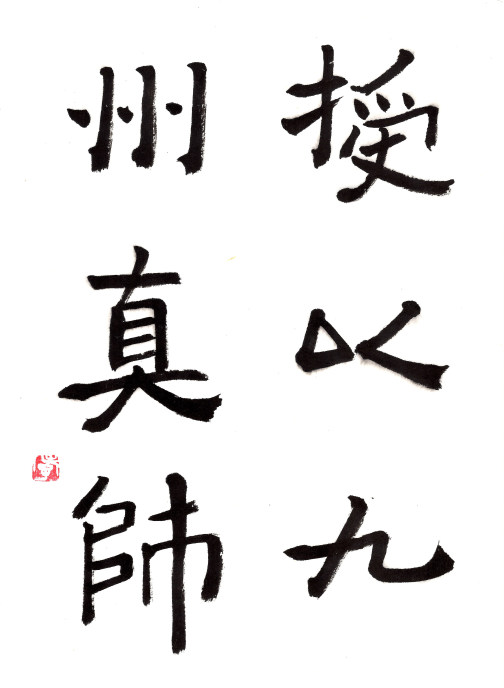 授以九
州真師